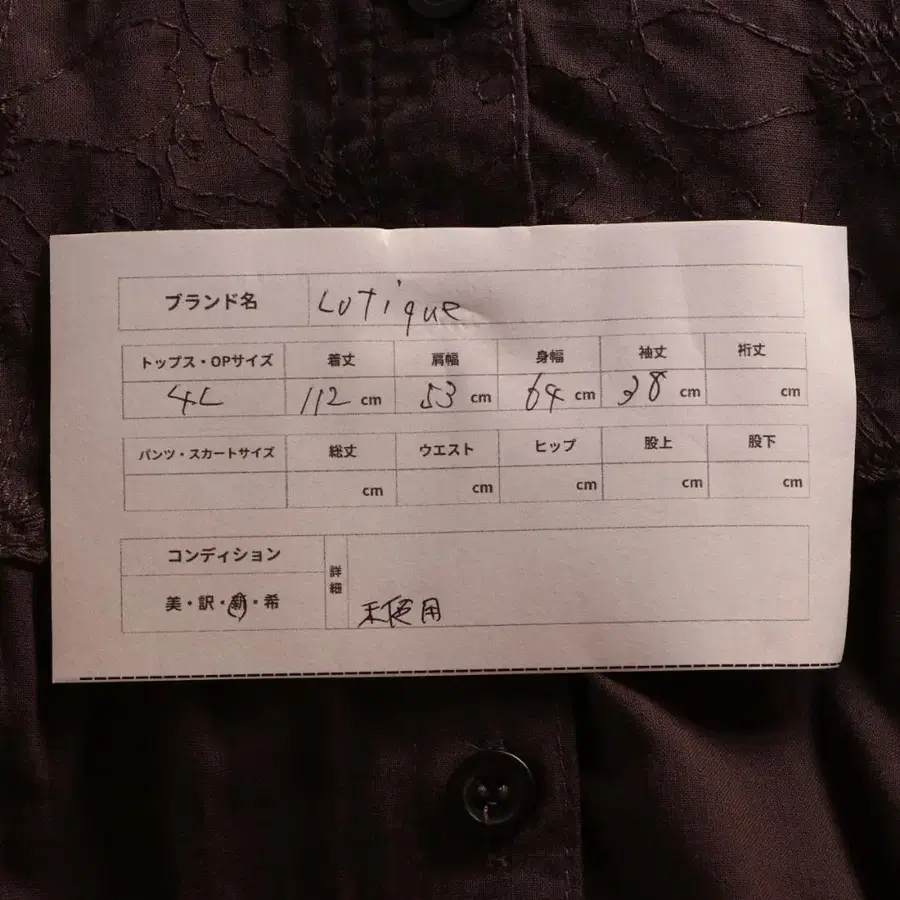 ブランド名 Lutique
トップス・OPサイズ 着丈 肩幅 身幅 袖丈 裄丈
4L 112 cm 53 cm 64 cm 38 cm cm
パンツ・スカートサイズ 総丈 ウエスト ヒップ 股上 股下
cm cm cm cm cm
コンディション
詳細
美・訳・新・希
未使用